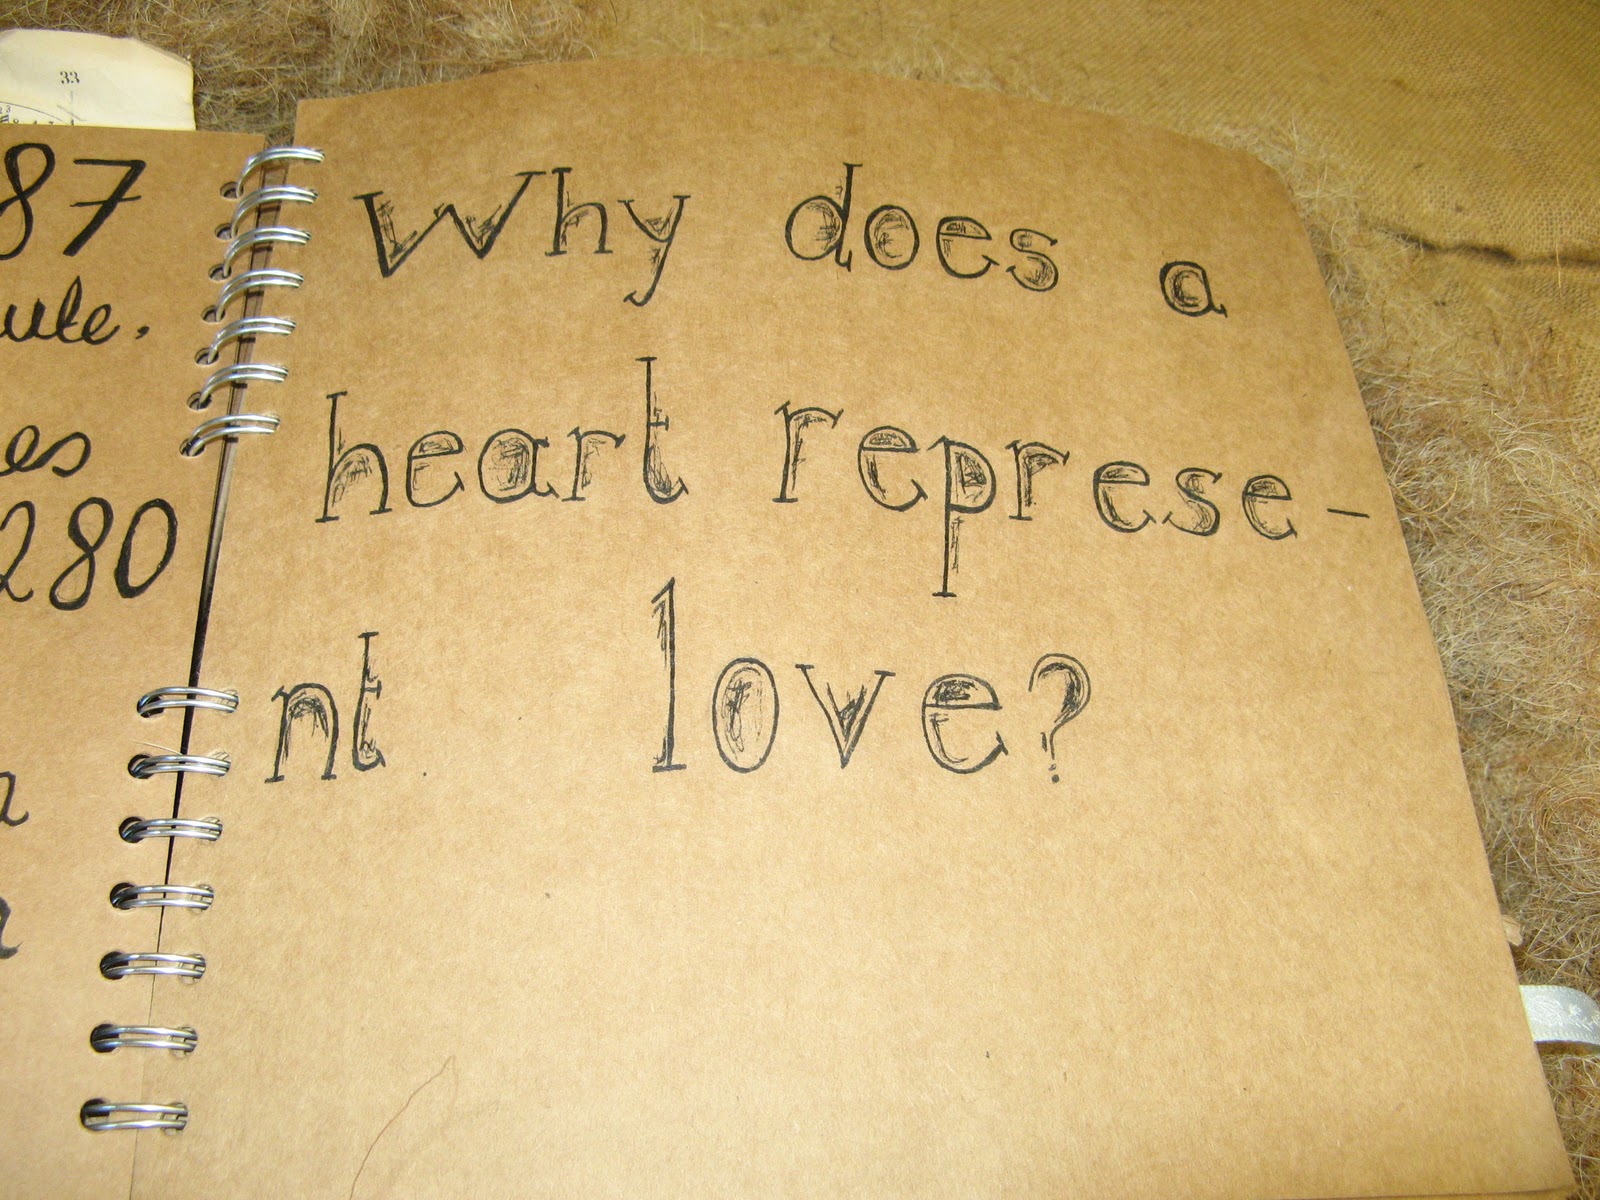 33
87
ute.
es
280
Why does a
heart represe-
nt love?